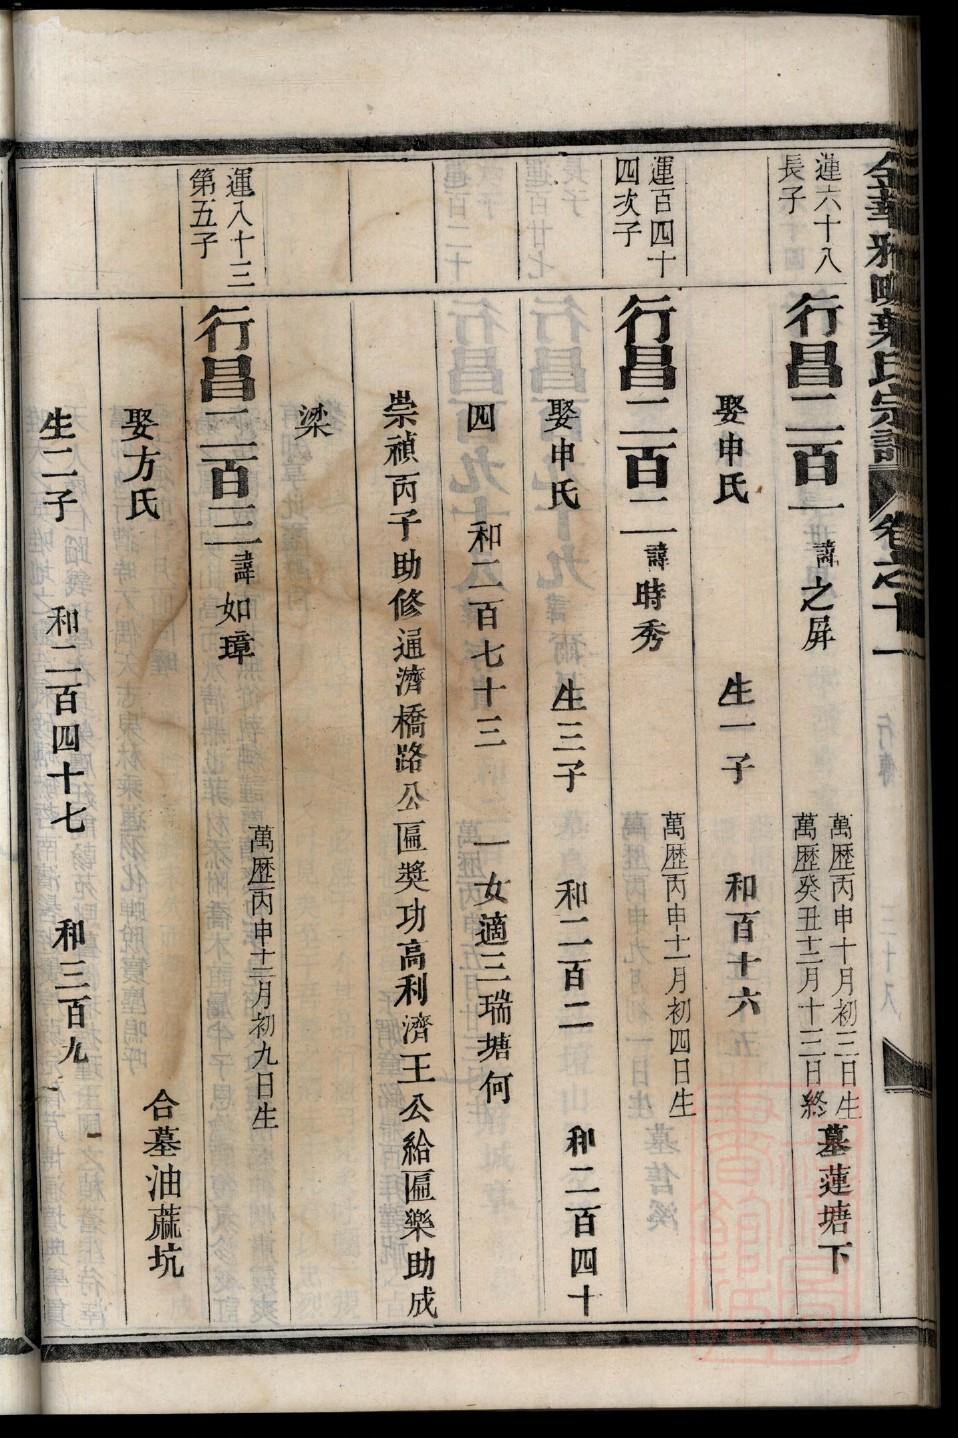 運六十八
長子
行昌二百一諱之屏
萬歷丙申十月初三日生
萬歷癸丑十二月十三日終
墓蓮塘下
娶申氏 生一子 和百十六
運百四十
四次子
行昌二百二諱時秀
萬歷丙申十一月初四日生
娶申氏 生三子 和二百二 和二百四十
四 和二百七十三 一女適三瑞塘何
崇禎丙子助修通濟橋路公匾奬功高利濟王公給匾樂助成
梁
運八十三
第五子
行昌二百三諱如璋
萬歷丙申十二月初九日生
娶方氏 合墓油蔴坑
生二子 和二百四十七 和三百九